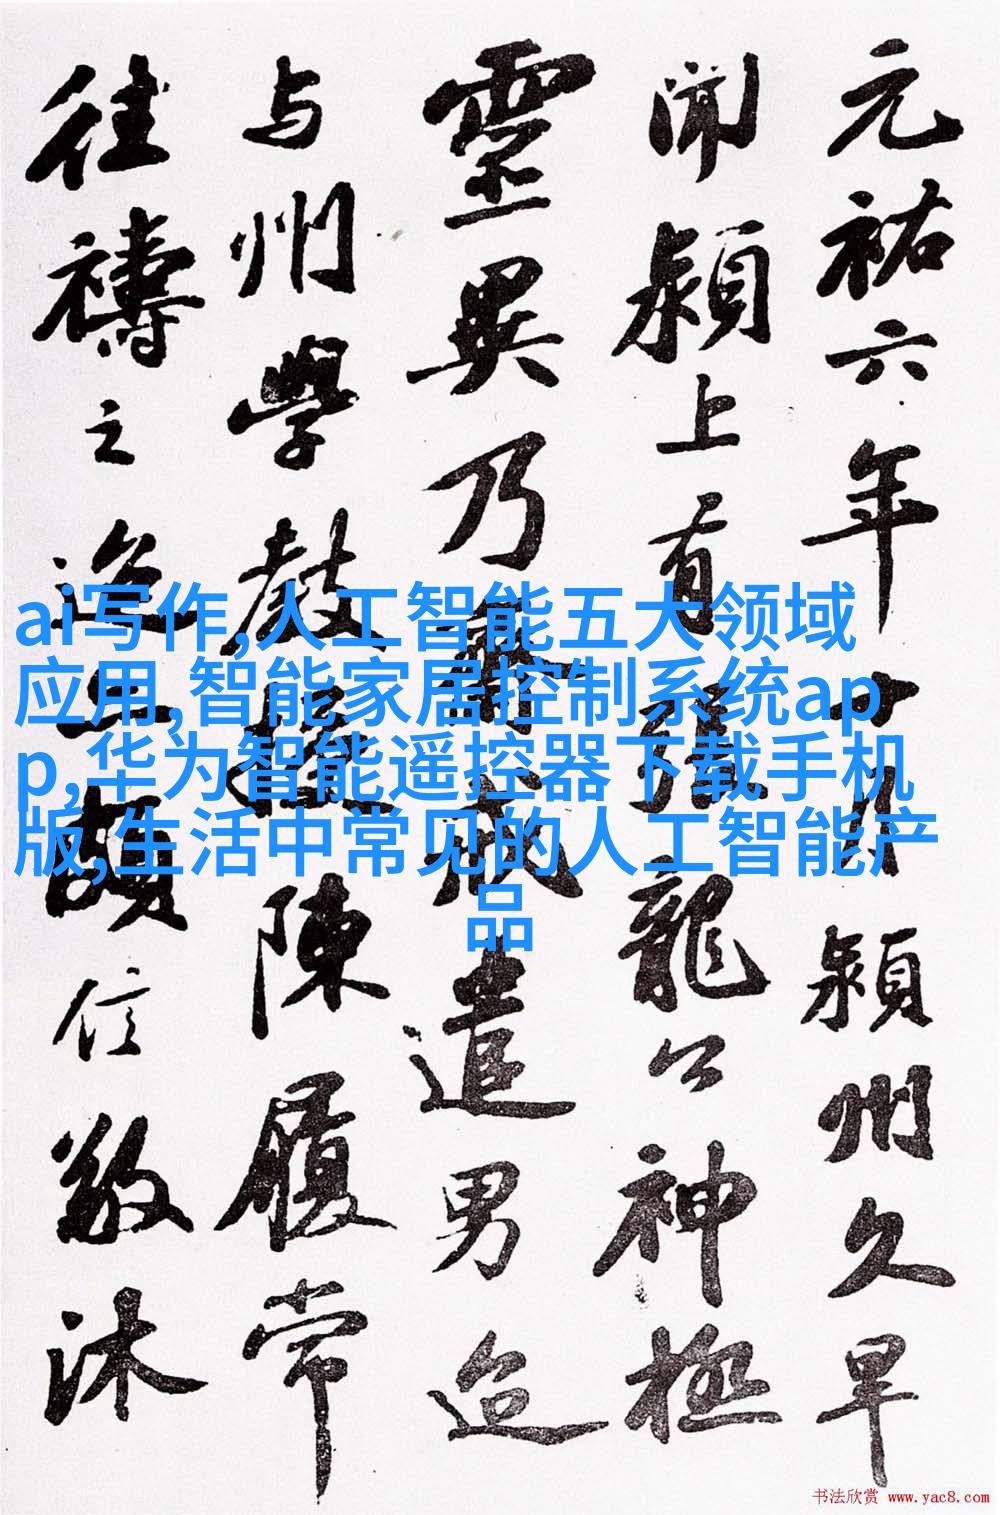 元祐六年十月颍州久旱
闻颍上有张龙公神极
靈異乃齋戒遣男迨
与州學教授陳履常
往禱之迨亦頗信敬沐
ai写作,人工智能五大领域
应用,智能家居控制系统ap
p,华为智能遥控器下载手机
版,生活中常见的人工智能产
品
书法欣赏 www.yac8.com